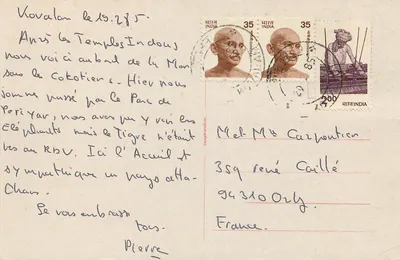 Kovalan le 19.2.85.
Après les Temples Indous
nous voici au bord de la Mer
sous le Cokotiers - Hier nous
somme passé par le Parc de
Periyar, nous avons pu y voir les
Eléphants mais le Tigre n'était
pas au RDV. Ici l'Accueil est
Sympathique un pays atta-
chant.
Je vous embrasse
tous.
Pierre
35
भारत INDIA
35
भारत INDIA
2.00
भारत INDIA
85
M et Me Carpentier
359 rené Caillé
94310 Orly
France.